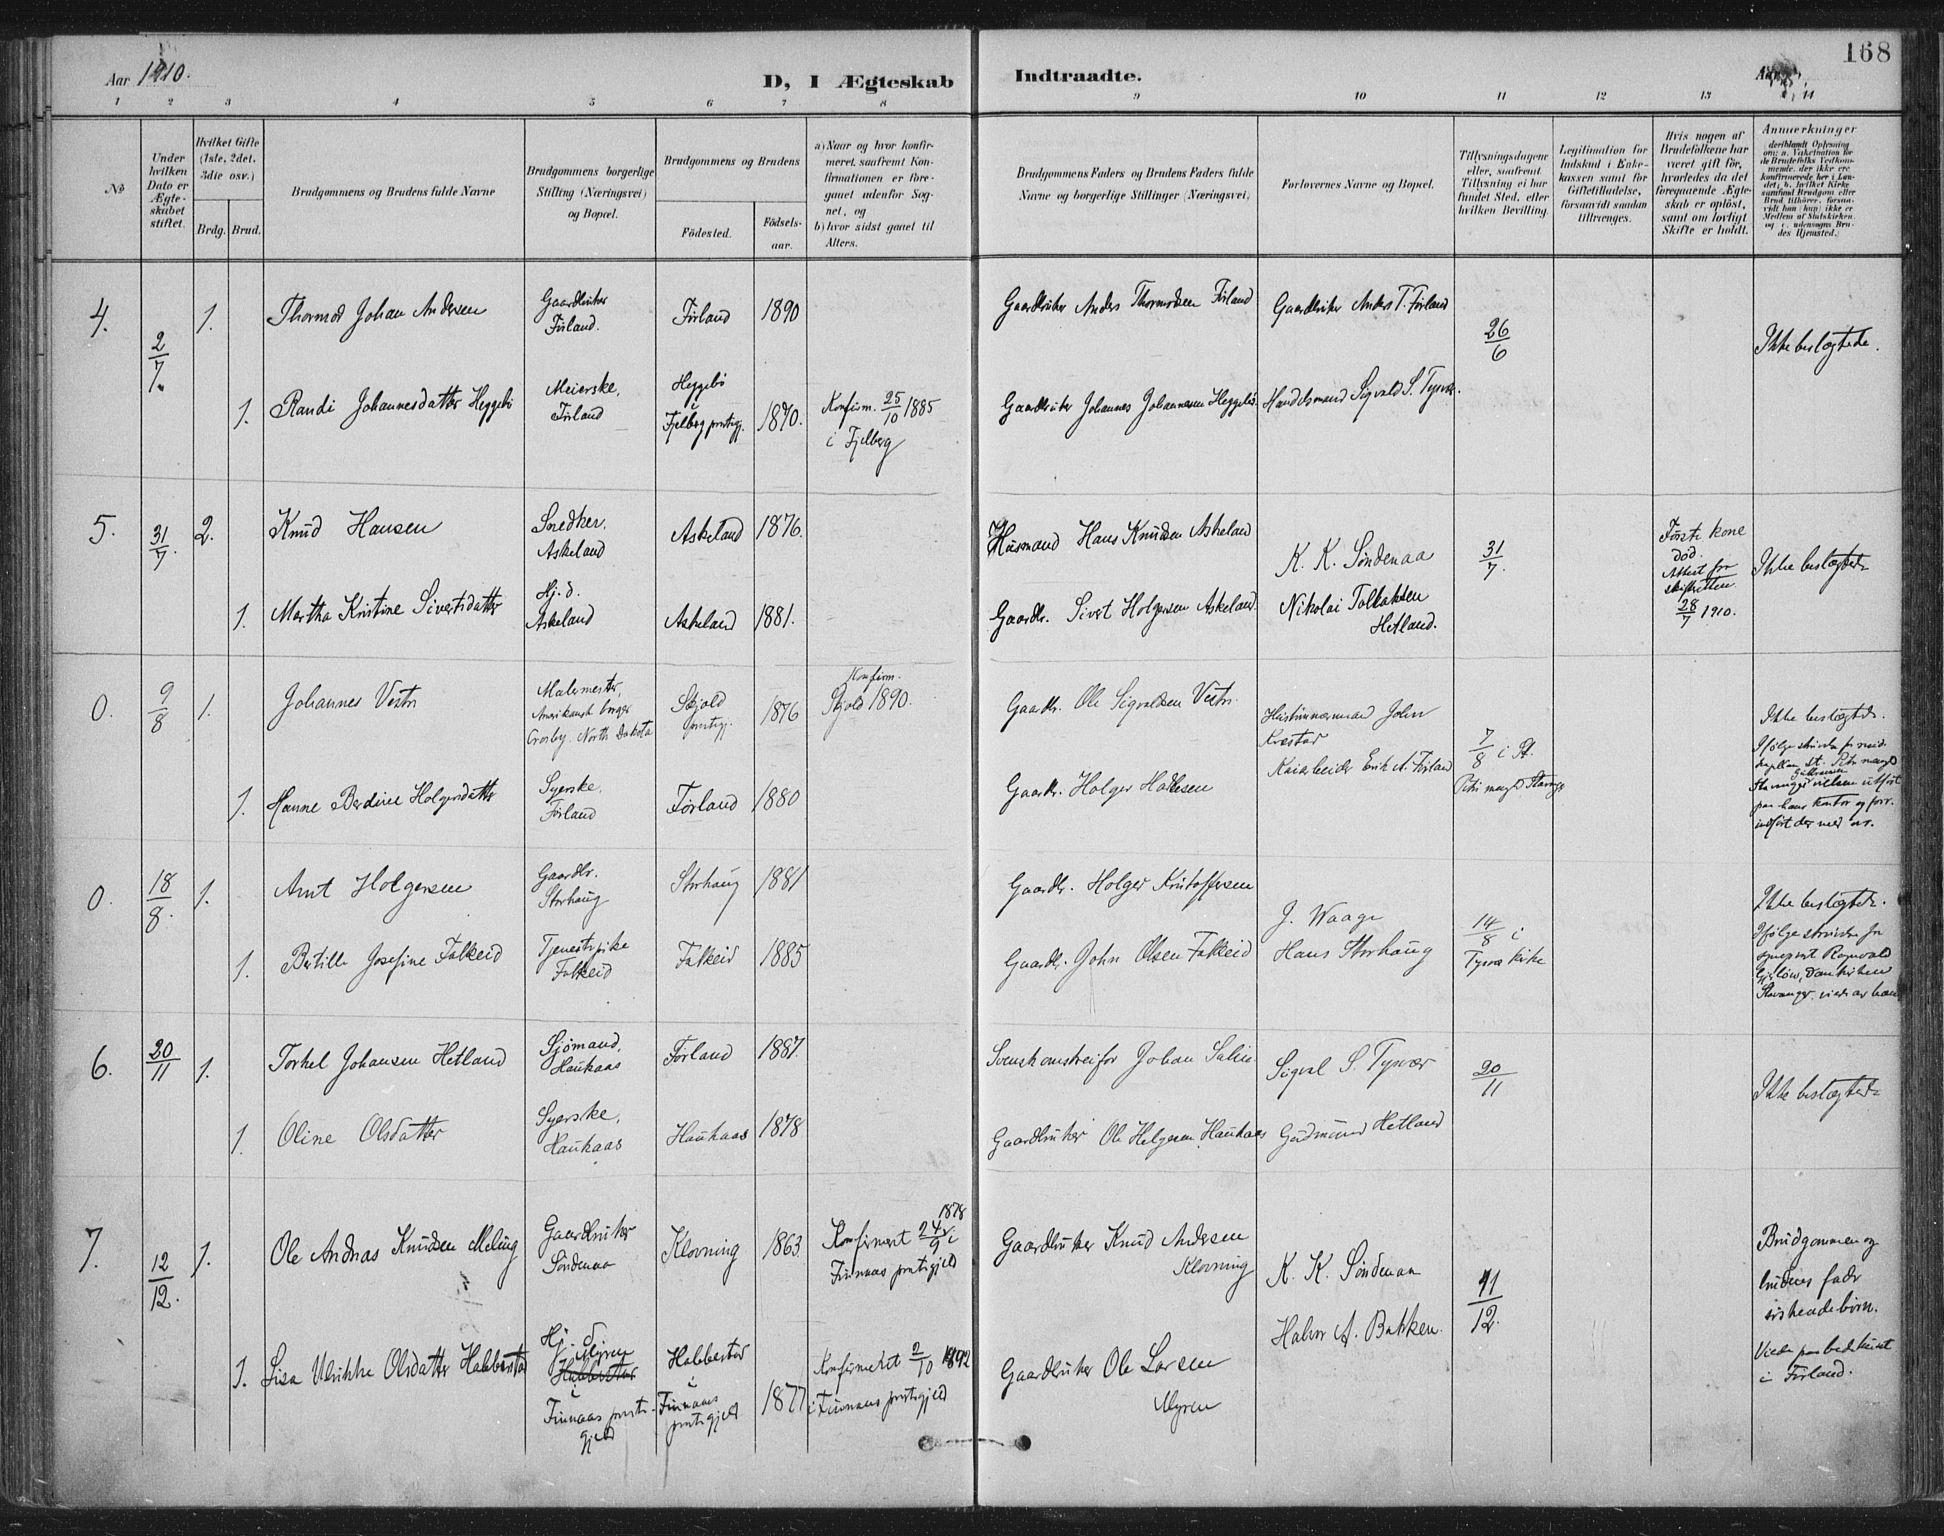 168
Aar 1910.
D, I Ægteskab Indtraadte.
Aar
1 2 3 4 5 6 7 8 9 10 11 12 13 14
№
Under hvilken Dato er Ægteskabet stiftet.
Hvilket Gifte (1ste, 2det, 3die osv.)
Brdg. Brud.
Brudgommens og Brudens fulde Navne
Brudgommens borgerlige Stilling (Næringsvei) og Bopæl.
Brudgommens og Brudens
Födested.
Födselsaar.
a) Naar og hvor konfirmeret, saafremt Konfirmationen er foregaaet udenfor Sognet, og
b) hvor sidst gaaet til Alters.
Brudgommens Faders og Brudens Faders fulde Navne og borgerlige Stillinger (Næringsvei)
Forlovernes Navne og Bopæl.
Tillysningsdagene eller, saafremt Tillysning ei har fundet Sted, efter hvilken Bevilling.
Legitimation for Indskud i Enkekassen samt for Giftetilladelse, forsaavidt saadan tiltrænges.
Hvis nogen af Brudefolkene har været gift før, hvorledes da det foregaaende Ægteskab er oplöst, samt om lovligt Skifte er holdt.
Anmerkninger
deriblandt Oplysning om: a. Vakcination for de Brudefolks Vedkommende, der ikke ere konfirmerede her i Landet; b. hvilket Kirkesamfund Brudgom eller Brud tilhörer, forsaavidt han (hun) ikke er Medlem af Statskirken, og c. udensogns Brudes Hjemsted.
4. 2/7. 1. Thormod Johan Andersen
Gaardbruker Førland.
Førland 1890
Gaardbruker Anders Thormodsen Førland
Gaardbruker Anders T. Førland
26/6
Ikke beslægtede.
1. Randi Johannesdatter Heggebø
Meierske, Førland
Heggebø i Fjelberg prestgj. 1870.
Konfirm. 25/10 1885 i Fjelberg
Gaardbruker Johannes Johannesen Heggebø.
Handelsmand Sigvald S. Tysvær.
5. 31/7. 2. Knud Hansen
Snedker, Askeland
Askeland 1876.
Husmand Hans Knudsen Askeland
K. K. Søndenaa
31/7.
Første kone død. Attest fra skifteretten 28/7 1910.
Ikke beslægtede
1. Martha Kristine Sivertsdatter
Hj. d. Askeland
Askeland 1881.
Gaardbr. Sivert Holgersen Askeland.
Nikolai Tollaksen Hetland.
0. 9/8 1. Johannes Vestre
Malermester, Amerikansk borger Crosby, North Dakota
Skjold prestgj. 1876
Konfirm. Skjold 1890.
Gaardbr. Ole Sigvaldsen Vestre.
Hustømmermand John Kvæstad
7/8 i St. Petri menighed Stavanger
Ikke beslægtede.
1. Hanne Berdine Holgersdatter
Syerske, Førland
Førland 1880
Gaardbr. Holger Halvesen
Kaiarbeider Erik A. Førland
Ifølge skrivelse fra residerende kapellan St. Petri menighed Stavanger vielsen utført paa hans kontor og forr. indført der med nr.
0. 18/8. 1. Arnt Holgersen
Gaardbr. Storhaug
Storhaug 1881
Gaardbr. Holger Kristoffersen
J. Waage
14/8 i Tysvær kirke
Ikke beslægtede.
1. Bertille Josefine Falkeid
Tjenestepike Falkeid
Falkeid 1885
Gaardbr. John Olsen Falkeid
Hans Storhaug
Ifølge skrivelse fra sogneprest Ragnvald Gjerløw, Domkirken Stavanger viede av ham
6. 20/11 1. Torkel Johansen Hetland
Sjømand, Haukaas
Førland 1887.
Svensk omstreifer Johan Salin
Sigval S. Tysvær
20/11
Ikke beslægtede
1. Oline Olsdatter
Syerske, Haukaas
Haukaas 1878
Gaardbruker Ole Helgesen Haukaas
Gudmund Hetland
7. 12/12. 1. Ole Andreas Knudsen Meling
Gaardbruker Søndenaa
Klovning 1863
Konfirmert 24/9 1878 i Finnaas prestegjeld
Gaardbruker Knud Andersen Klovning
K. K. Søndenaa
11/12.
Brudgommen og brudens fader søskendebørn.
1. Lisa Ulrikke Olsdatter Habbestad
Hj. d. Myren Habbestad i Finnaas prestegjeld
Habbestad i Finnaas prestegjeld 1877
Konfirmeret 2/10 1892 i Finnaas prestegjeld
Gaardbruker Ole Larsen Myren
Halvor A. Bakken.
Viede paa bedehuset i Førland.